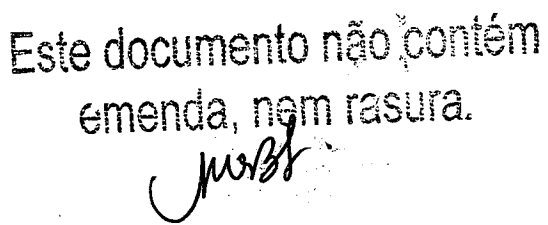 Este documento não contém
emenda, nem rasura.